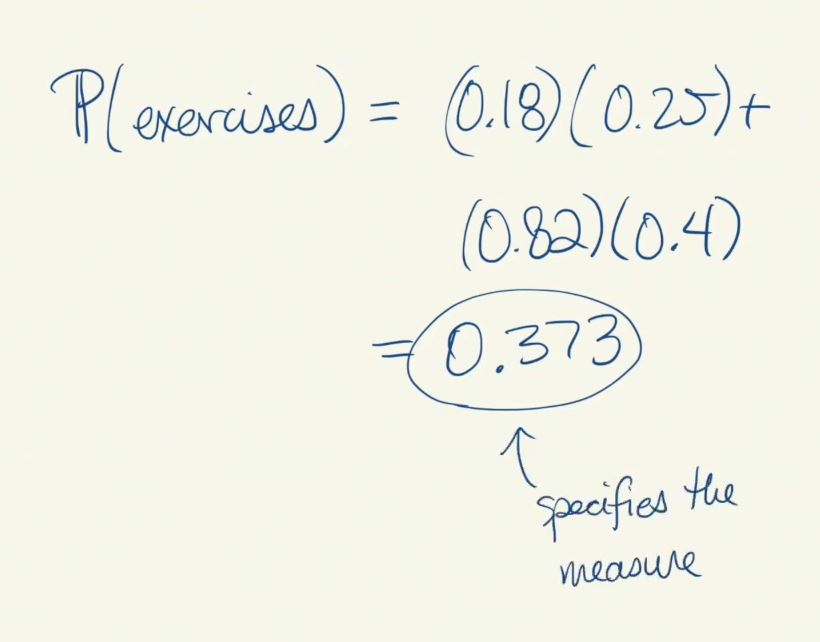 ℙ(exercises) = (0.18)(0.25)+
(0.82)(0.4)
= 0.373
↑
specifies the
measure